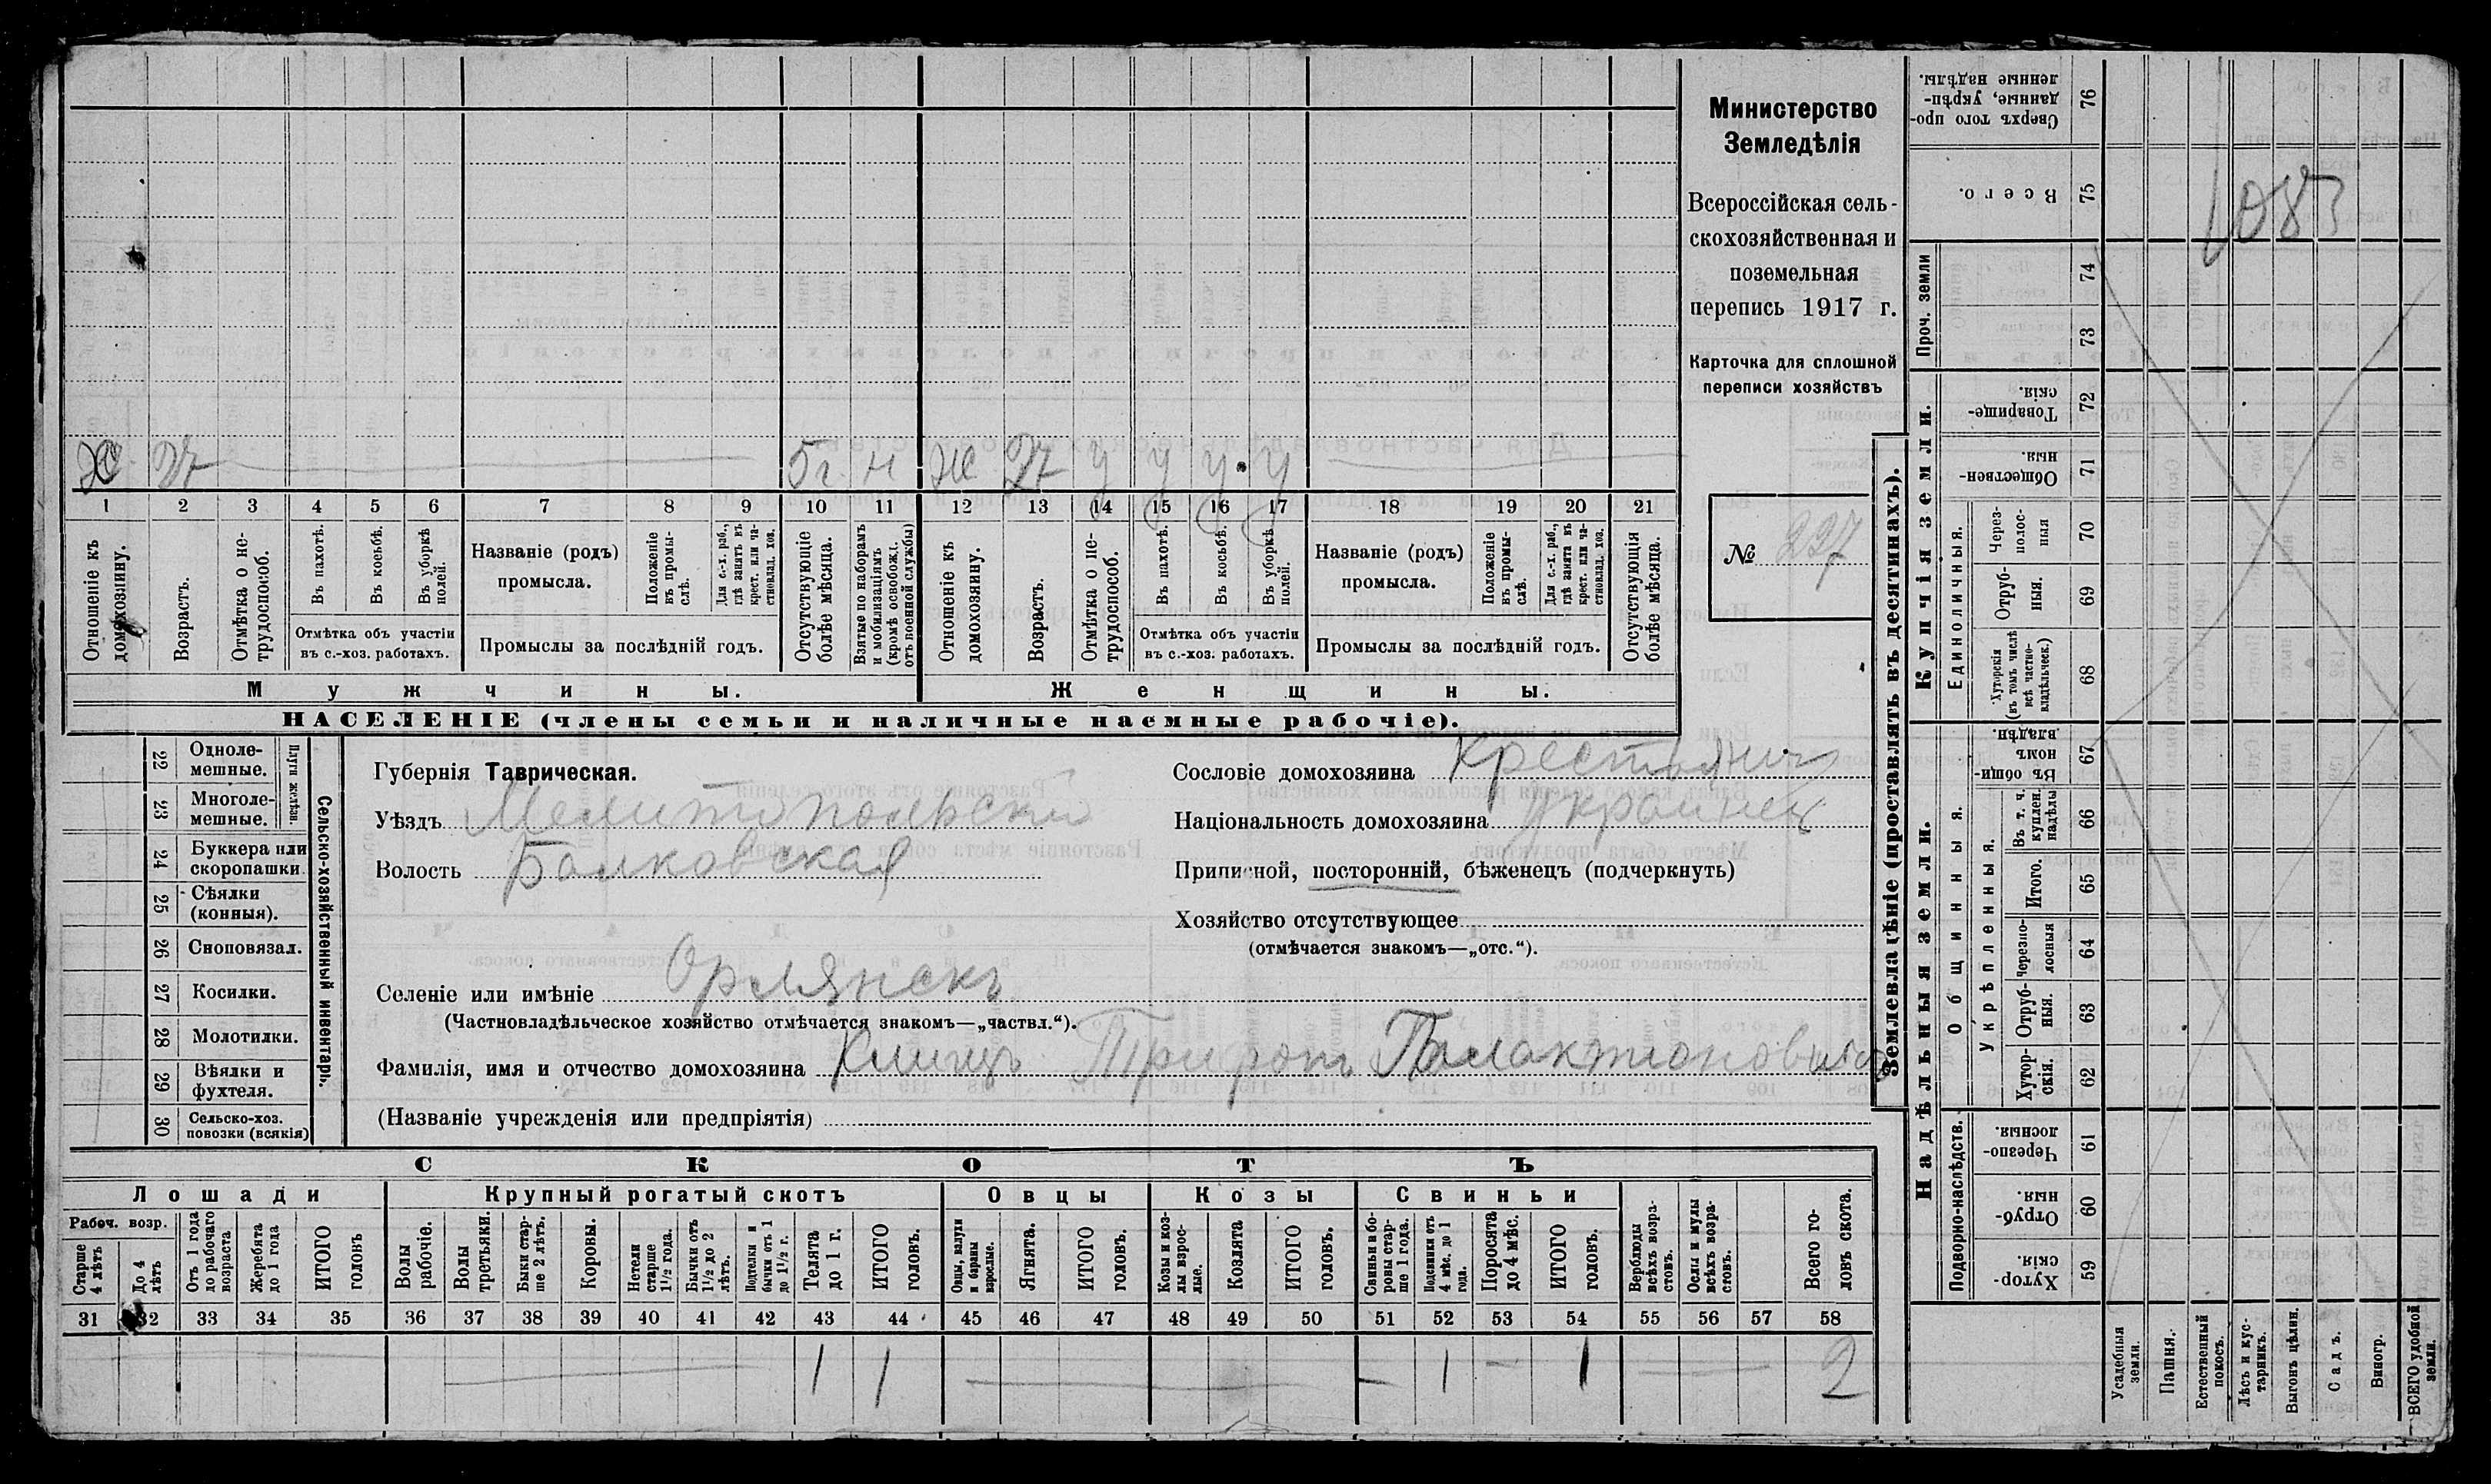 Х 27 5 г. н Ж 27 у у у у
1 2 3 4 5 6 7 8 9 10 11 12 13 14 15 16 17 18 19 20 21
Отношеніе къ домохозяину.
Возрастъ.
Отмѣтка о не-
трудоспособ.
Въ пахотѣ.
Въ косьбѣ.
Въ уборкѣ полей.
Отмѣтка объ участіи
въ с.-хоз. работахъ.
Названіе (родъ)
промысла.
Положеніе въ промы-
слѣ.
Для с.-х. раб.,
гдѣ занятъ въ
крест. или ча-
стновлад. хоз.
Промыслы за послѣдній годъ.
Отсутствующіе
болѣе мѣсяца.
Взятые по наборамъ
и мобилизаціямъ
(кромѣ освобожд.
отъ военной службы)
Отношеніе къ
домохозяину.
Возрастъ.
Отмѣтка о не-
трудоспособ.
Въ пахотѣ.
Въ косьбѣ.
Въ уборкѣ полей.
Отмѣтка объ участіи
въ с.-хоз. работахъ.
Названіе (родъ)
промысла.
Положеніе въ промы-
слѣ.
Для с.-х. раб.,
гдѣ занята въ
крест. или ча-
стновлад. хоз.
Промыслы за послѣдній годъ.
Отсутствующія
болѣе мѣсяца.
Мужчины.
Женщины.
НАСЕЛЕНІЕ (члены семьи и наличные наемные рабочіе).
Министерство
Земледѣлія
Всероссійская сель-
скохозяйственная и
поземельная
перепись 1917 г.
Карточка для сплошной
переписи хозяйствъ
№ 227
22 Одноле-
мешные.
23 Многоле-
мешные.
Плуги желѣзн.
24 Буккера или
скоропашки
25 Сѣялки
(конныя).
26 Сноповязал.
27 Косилки.
28 Молотилки.
29 Вѣялки и
фухтеля.
30 Сельско-хоз.
повозки (всякія)
Сельско-хозяйственный инвентарь.
Губернія Таврическая.
Уѣздъ Мелитопольскій
Волость Балковская
Сословіе домохозяина крестьянин
Національность домохозяина Украинец
Приписной, посторонній, бѣженецъ (подчеркнуть)
Хозяйство отсутствующее
(отмѣчается знакомъ—„отс.“).
Селеніе или имѣніе Орлянскъ
(Частновладѣльческое хозяйство отмѣчается знакомъ—„частвл.“).
Фамилія, имя и отчество домохозяина Клищъ
(Названіе учрежденія или предпріятія)
СКОТЪ
Лошади
Рабоч. возр.
Старше
4 лѣтъ
До 4
лѣтъ
Отъ 1 года
до рабочаго
возраста
Жеребята
до 1 года
ИТОГО
головъ
Крупный рогатый скотъ
Волы
рабочіе.
Волы
третьяки.
Быки стар-
ше 2 лѣтъ.
Коровы.
Нетели
старше
1½ года.
Бычки отъ
1½ до 2
лѣтъ.
Подтелки и
бычки отъ 1
до 1½ г.
Телята
до 1 г.
ИТОГО
головъ.
Овцы
Овцы, валухи
и бараны
взрослые.
Ягнята.
ИТОГО
головъ.
Козы
Козы и коз-
лы взрос-
лые.
Козлята
ИТОГО
головъ.
Свиньи
Свиньи и бо-
ровы стар-
ше 1 года.
Подсвинки отъ
4 мѣс. до 1
года.
Поросята
до 4 мѣс.
ИТОГО
головъ.
Верблюды
всѣхъ возра-
стовъ.
Ослы и мулы
всѣхъ возра-
стовъ.
Всего го-
ловъ скота.
31 32 33 34 35 36 37 38 39 40 41 42 43 44 45 46 47 48 49 50 51 52 53 54 55 56 57 58
1 1 — 1 — 1 2
Землевладѣніе (проставлять въ десятинахъ).
Купчія земли.
Надѣльныя земли.
Сверхъ того про-
данные, укрѣп-
ленные надѣлы.
76
Всего.
75
1083
Проч. земли
74
73
Товарище-
скія.
72
Обществен-
ныя.
71
Единоличныя.
Через-
полос-
ныя
70
Отруб-
ныя.
69
Хуторскія
(въ томъ числѣ
всѣ частно-
владѣльческ.)
68
Общинныя.
Въ общин-
номъ
владѣн.
67
Укрѣпленныя.
Въ т. ч.
куплен.
надѣлы
66
Итого.
65
Черезпо-
лосныя
64
Отруб-
ныя.
63
Хутор-
скія.
62
Подворно-наслѣдств.
Черезпо-
лосныя.
61
Отруб-
ныя.
60
Хутор-
скія.
59
Усадебныя
земли.
Пашня.
Естественный
покосъ.
Лѣсъ и кус-
тарникъ.
Выгонъ цѣлин.
Садъ.
Виногр.
ВСЕГО удобной
земли.